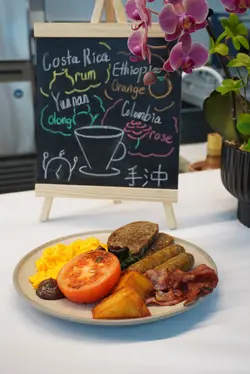 Costa Rica
rum
Yunnan
olong
Ethiopia
Orange
Colombia
rose
手冲